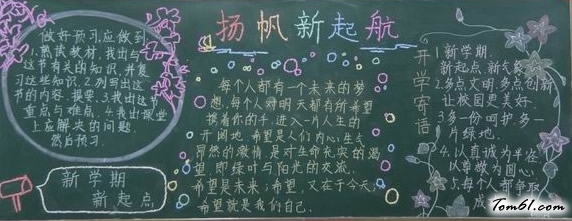 扬帆新起航
做好预习,应做到
1.熟读教材,找出与
这节有关的知识,并复
习这些知识.2.列出这
节的内容提要.3.找出这节
重点与难点.4.找出课堂
上应解决的问题,
然后预习.
新学期
新起点
每个人都有一个未来的梦
想,每个人对明天都有所希望
携着你的手,进入一片人生的
开阔地.希望是人们内心生气
昂然的激情,是对生命充实的渴
望,即绿叶与阳光的交流.
希望是未来;希望,又在于今天;
希望就是我们自己.
开学寄语
1.新学期,
新起点,新气象
2.多点文明,多点创新
让校园更美好.
3.多一份呵护,多一
片绿地.
4.以真诚为半径
以尊敬为圆心,
5.每个人都争取
Tom61.com